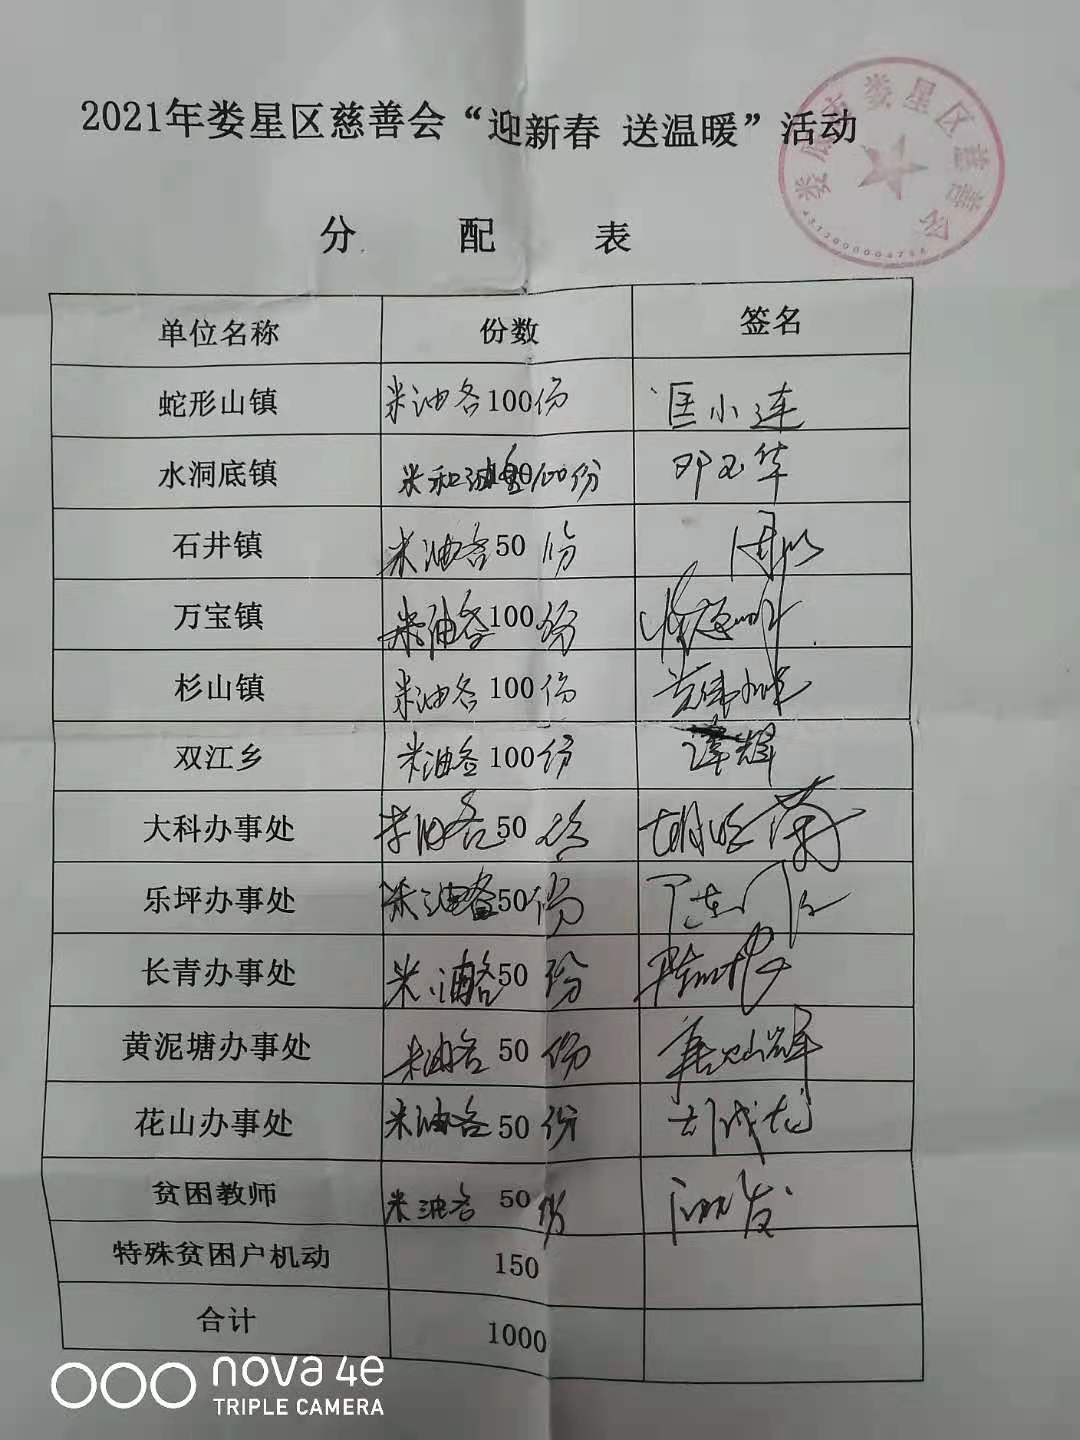 2021年娄星区慈善会“迎新春 送温暖”活动
娄底市娄星区慈善会
分 配 表
单位名称 份数 签名
蛇形山镇 米油各100份 匡小连
水洞底镇 米和油 100份 邓玉华
石井镇 米油各50份
万宝镇 米油各100份
杉山镇 米油各100份
双江乡 米油各100份 谭辉
大科办事处 米油各50份
乐坪办事处 米油各50份
长青办事处 米油各50份
黄泥塘办事处 米油各50份
花山办事处 米油各50份
贫困教师 米油各50份
特殊贫困户机动 150
合计 1000
nova 4e
TRIPLE CAMERA